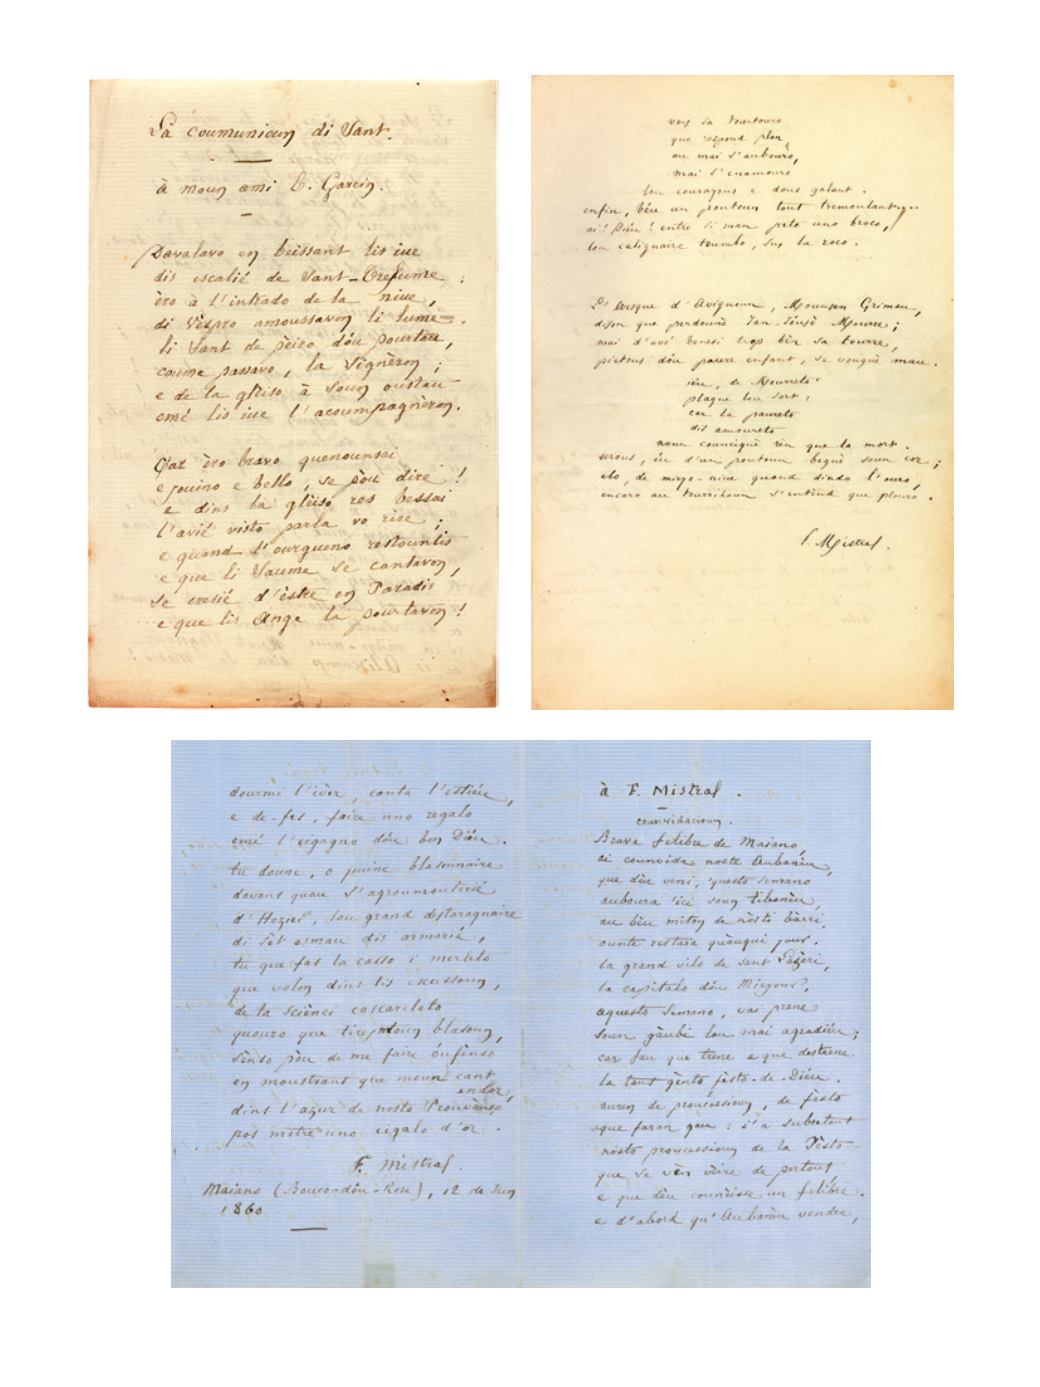 La coumunioun di Sant.
à moun ami E. Garcin.
Davalavo en beissant lis iue
dis escalié de Sant-Trefume :
èro à l'intrado de la niue,
di Vèspro amoussavon li lume.
li Sant de pèiro dóu pourtau,
coume passavo, la signèron ;
e de la glèiso à soun oustau
emé lis iue l'acoumpagnèron.
Car èro bravo quenounsai
e jouino e bello, se pòu dire !
e dins la glèiso res bessai
l'avié visto parla vo rire ;
e quand l'ourgueno restountis
e que li Saume se cantavon,
se cresié d'èstre en Paradis
e que lis Ange la pourtavon !
vers sa tourtouro
que respond plan,
au mai s'aubouro,
mai s'enamouro
lou courajous e dous galant.
enfin, béu un poutoun tout tremoulant
ai ! Diéu ! entre si man peto uno broco,
lou calignaire toumbo, sus la roco.
L'Evesque d'Avignoun, Mounsen Grimau,
dison que perdounè Jan
mai d'avé trop bèn sa tourre,
pietous dóu paure enfant, se vougué mau.
iéu, de Mourreto
plague lou sort :
car la paureto
dis amoureto
noun couneiguè rèn que la mort.
urous, éu d'un poutoun beguè soun cor ;
elo, de miejo-niue quand dindo l'ouro,
encaro au s'entènd que plouro.
F. Mistral.
dourmi l'ivèr, canta l'estiéu,
e de-fes, faire uno regalo
emé l'eigagno dóu bon Diéu.
tu dounc, o jouine blasounaire
davans quau s'agroumoulirié
d'Hozier, lou grand destaragnaire
di sèt esmau dis armarié,
tu que fas la casso i merleto
que volon dins lis escussoun,
de la sciènci cascareleto
quouro que tire moun blasoun,
sènso pòu de me faire óufènso
en moustrant que moun cant
endor,
dins l'azur de nosto Prouvènço
pos metre uno cigalo d'or.
F. Mistral.
Maiano (Bouco-dóu-Rose), 12 de Jun
1860
à F. Mistral.
counvidacioun.
Brave felibre de Maiano,
ai counvida noste Aubanèu,
que dèu veni, 'questo semano
auboura 'ici soun tibanèu,
au bèu mitan de nòsti bàrri,
ounte restara quàuqui jour.
la grand vilo de sant Lazàri,
la capitalo dóu Miejour,
aquesto semano, vai prene
soun gàubi lou mai agradiéu ;
car fau que trene e que destrene
la tant gènto fèsto-de-Diéu.
auren de proucessioun, de fèsto
que faran gau : i'a subretout
nosto proucessioun de la Tèsto
que se vèn vèire de pertout
e que dèu counèisse un felibre.
e d'abord qu'Aubanèu vendra,